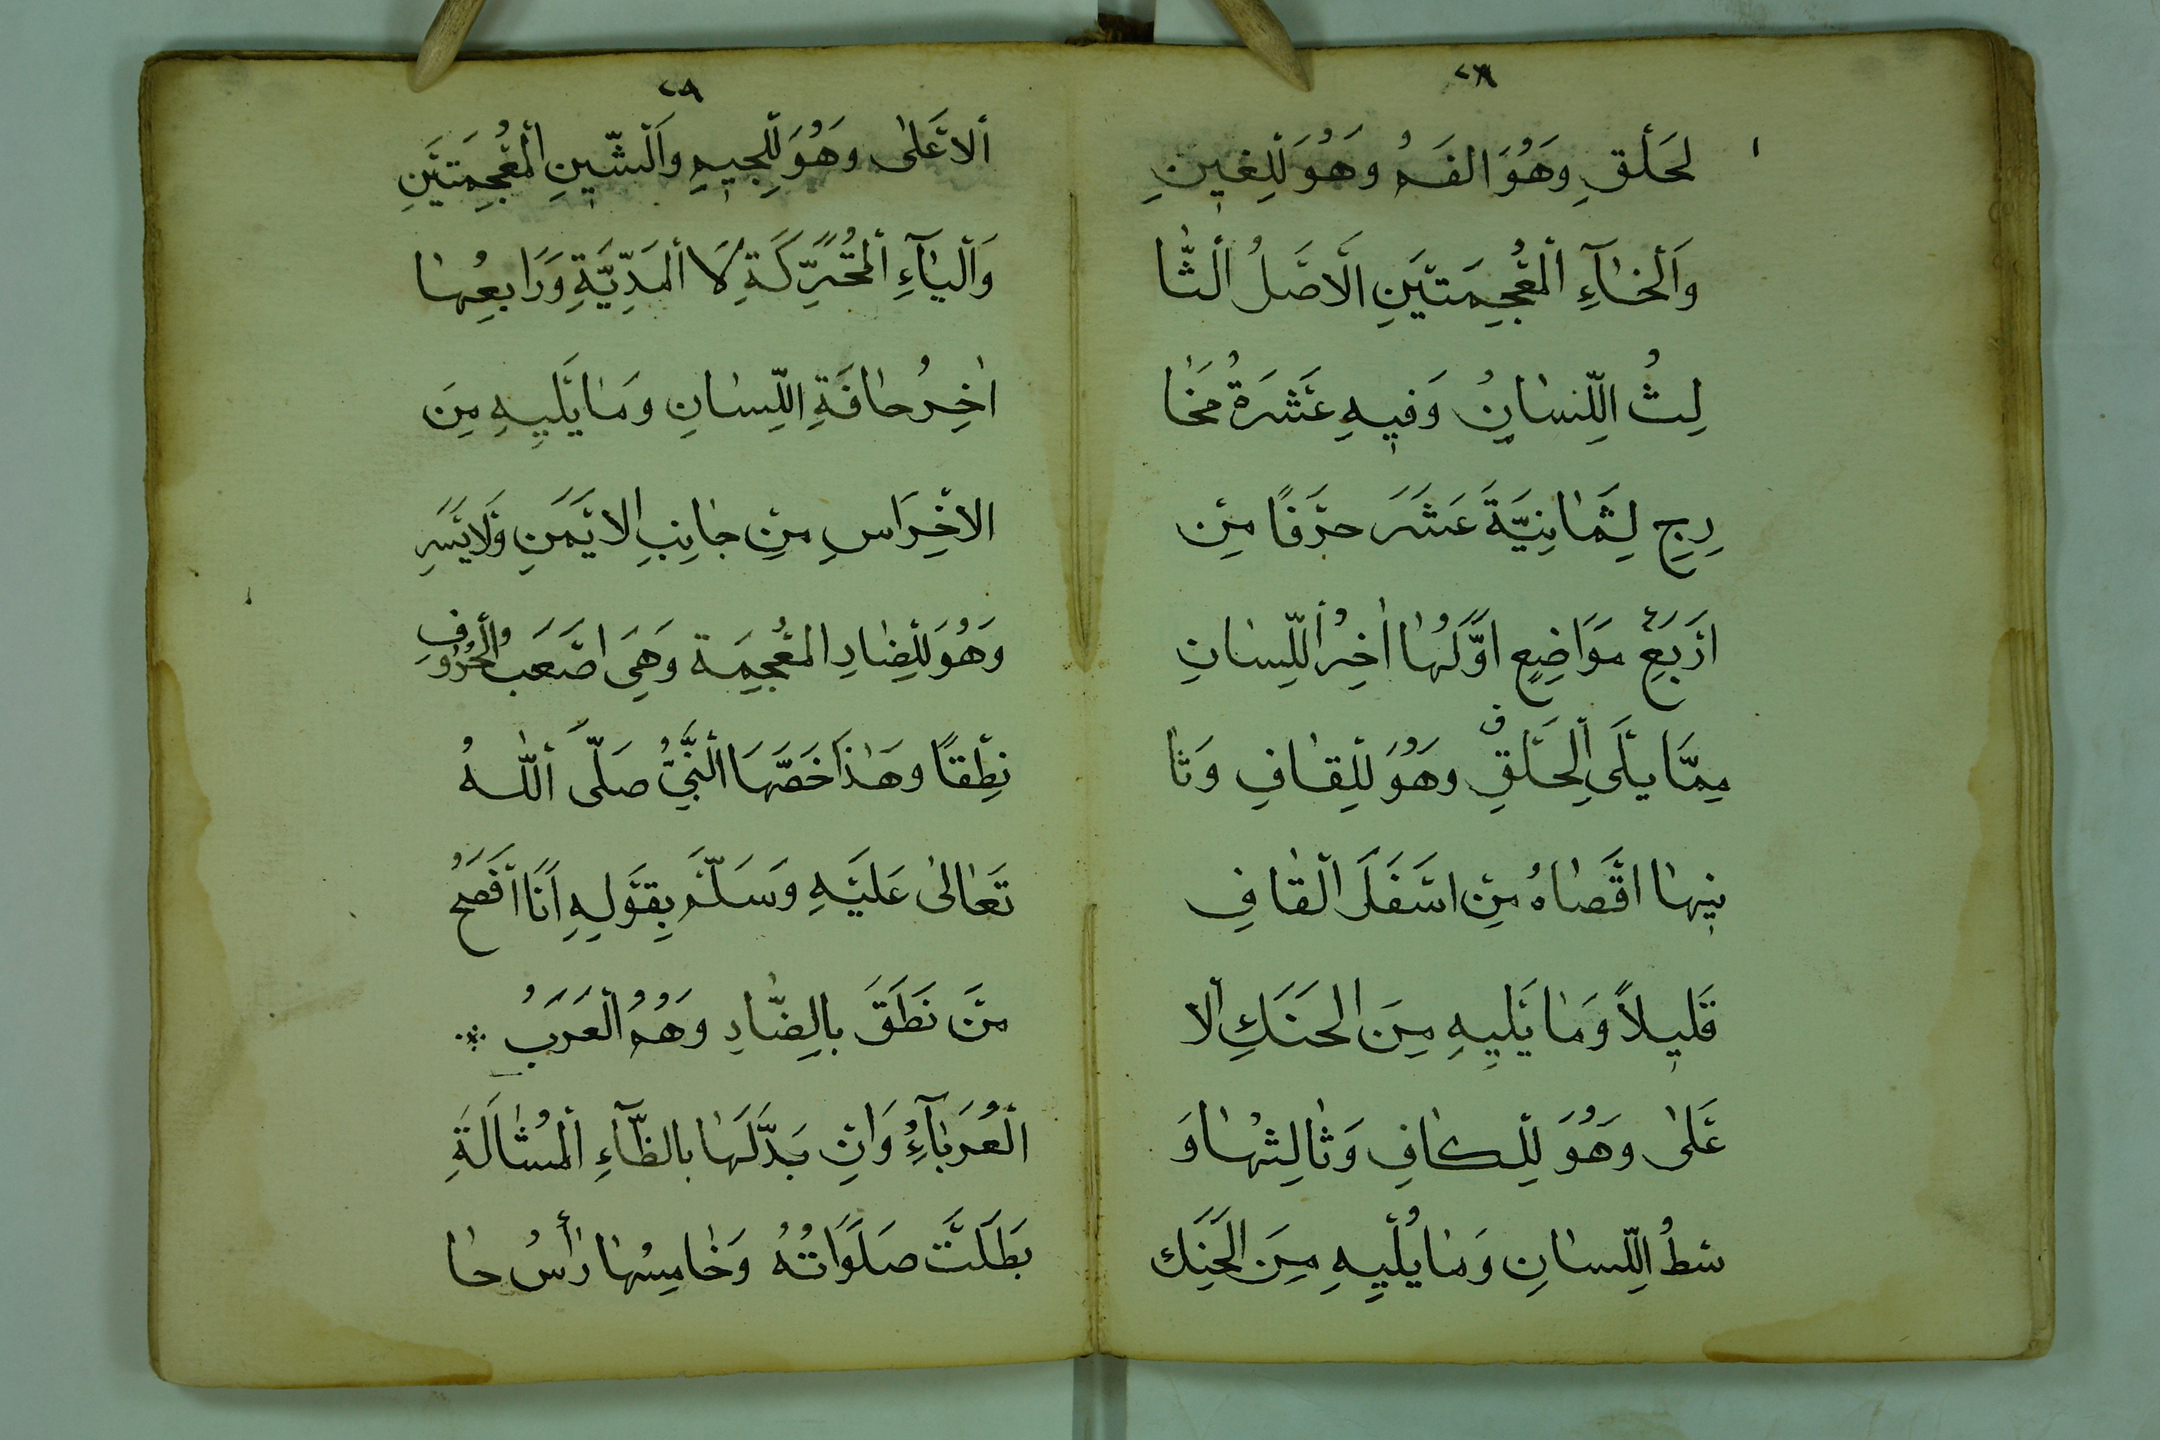 ٢٨
لحَلْقِ وَهُوَ الفَمُ وَهُوَ لِلْغِينِ
وَالْخَاءِ الْمُعْجِمَتَيْنِ الْاَصْلُ الثَّا
لِثُ اللِّسَانُ وَفِيهِ عَشَرَةُ مَخَا
رِجٍ لِثَمَانِيَّةَ عَشَرَ حَرْفًا مِنْ
اَرْبَعِ مَوَاضِعٍ اَوَّلُهَا اٰخِرُ اللِّسَانِ
مِمَّا يَلَى الْحَلْقِ وَهُوَ لِلْقَافِ وَثَا
نِيهَا اَقْصَاهُ مِنْ اَسْفَلَ الْقَافِ
قَلِيلاً وَمَا يَلِيهِ مِنَ الحَنَكِ الْا
عَلىٰ وَهُوَ لِلْكَافِ وَثَالِثُهَا وَ
سْطُ اللِّسَانِ وَمَا يُلْيِهِ مِنَ الْحَنَكِ
٢٩
الْاَعْلىٰ وَهُوَ لِلْجِيمِ وَالشِّينِ الْمُعْجِمَتَيْنِ
وَالْيَاءِ الْمُتَحَرِّكَةِ لَا الْمَدِّيَّةِ وَرَابِعُهَا
اٰخِرُ حَافَةِ اللِّسَانِ وَمَا يَلِيهِ مِنَ
الاَضْرَاسِ مِنْ جَانِبِ الاَيْمَنِ وَلَايْسَرِ
وَهُوَ لِلْضَادِ الْمُعْجِمَة وَهِيَ اَصْعَبُ الْحُرُوفِ
نِطْقًا وَهَذَا خَصَّهَا النَّبِيُّ صَلَّى اللّٰهُ
تَعَالىٰ عَلَيْهِ وَسَلَّمَ بِقَوْلِهِ اَنَا اَفْصَحُ
مَنْ نَطَقَ بِالضَّادِ وَهُمُ الْعَرَبُ
الْعُرَبَاءُِ وَاِنْ بَدَّلَهَا بِالظَّاءِ الْمُشَالَةِ
بَطَلَتْ صَلَوَاتُهُ وَخَامِسُهَا رَأْسُ حَا